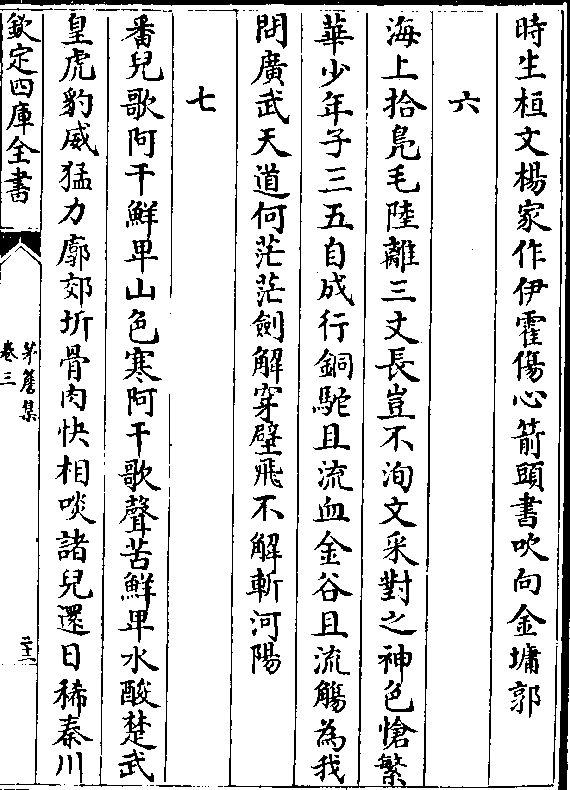 時生桓文楊家作伊霍傷心箭頭書吹向金墉郭
六
海上拾鳧毛陸離三丈長豈不洵文采對之神色愴繁
華少年子三五自成行銅駝且流血金谷且流觴為我
問廣武天道何茫茫劍解穿壁飛不解斬河陽
七
番兒歌阿干鮮卑山色寒阿干歌聲苦鮮卑水酸楚武
皇虎豹威猛力廓郊圻骨肉快相啖諸兒還日稀秦川
欽定四庫全書
茅簷集
卷三
二十二